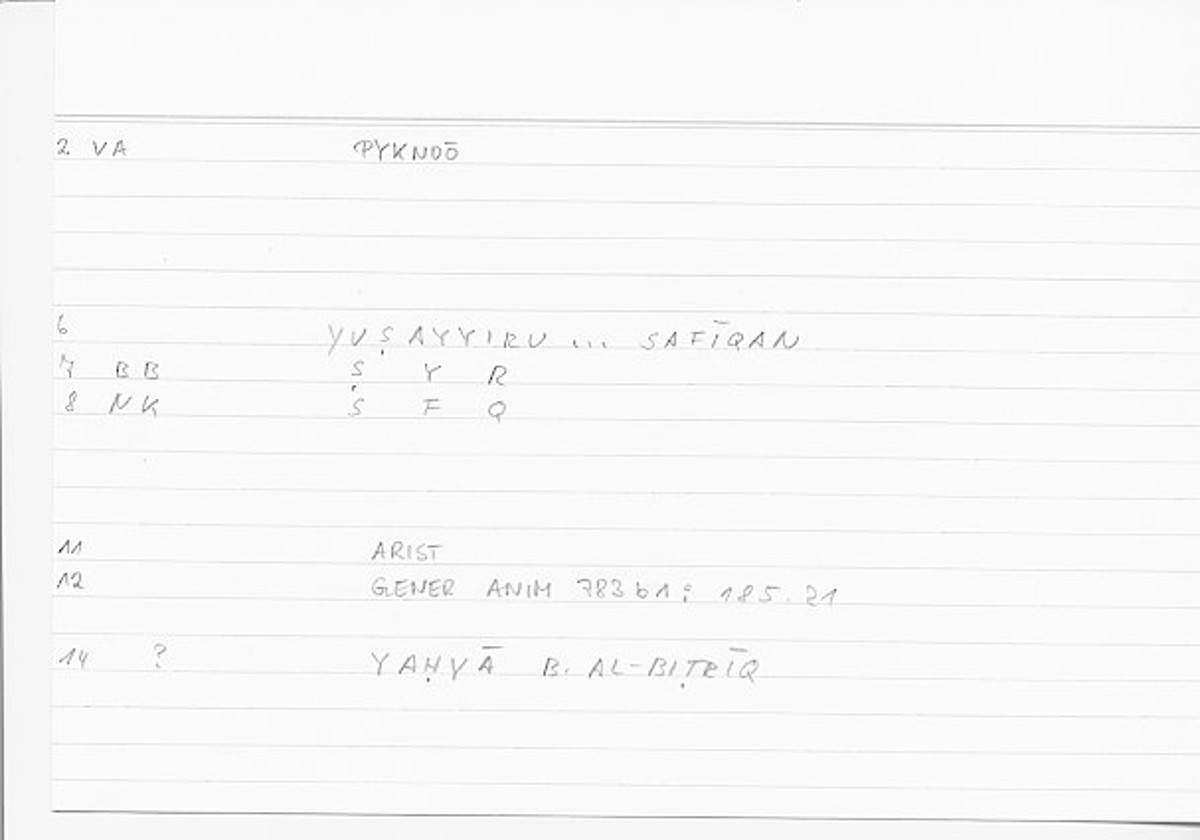 2 VA PYKNOŌ
6 YUṢAYYIRU ... SAFĪQAN
7 BB Ṣ Y R
8 NK Ṣ F Q
11 ARIST
12 GENER ANIM 783b1; 185.21
14 ? YAḤYĀ B. AL-BIṬRĪQ